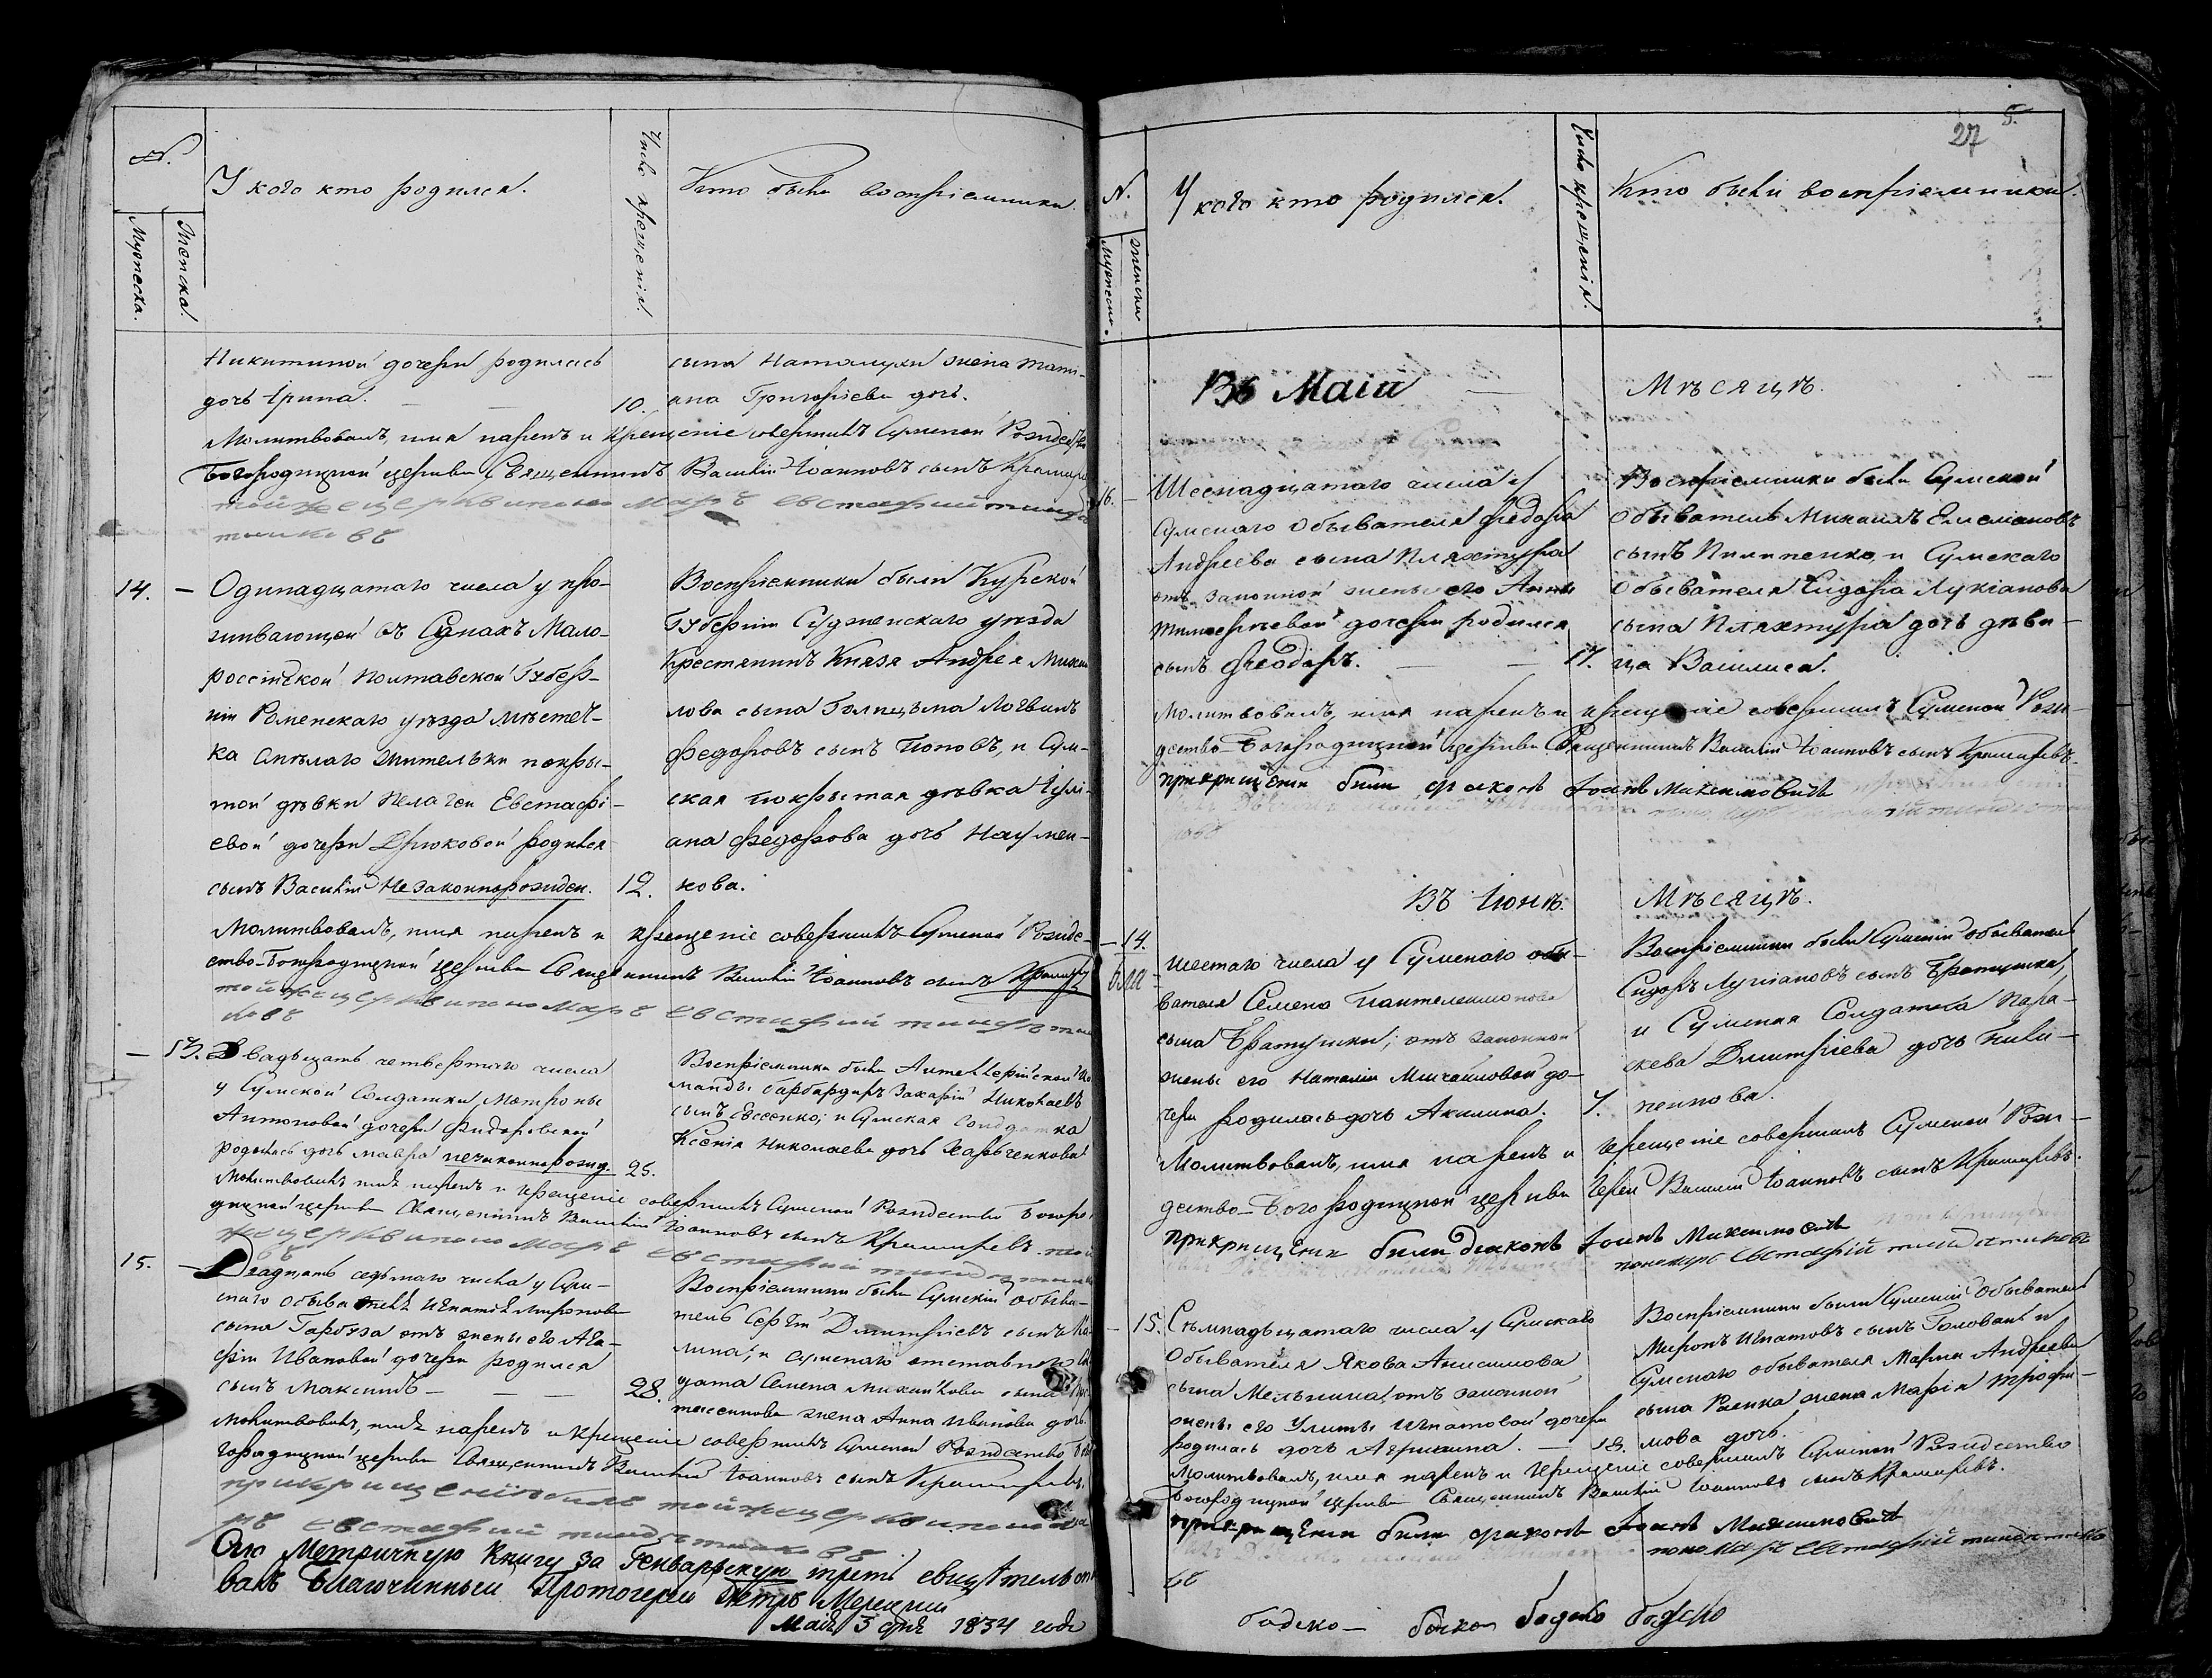 №.
Мужеска.
Женска.
У кого кто родился.
Число крещенія.
Кто были воспріемники.
Никитиной дочери родилась
дочь Ірина. — — 10.
сына жена Тати-
ана Григоріева дочь.
Молитвовалъ, имя нарекъ и крещеніе совершилъ Сумской Рождество
Богородицкой церкви Священникъ Василій Іоанновъ сынъ
тойже церкви понамаръ Евстафий
14. — Одинадцатаго числа у про-
живающей въ Сумахъ Мало-
россійской Полтавской Губер-
ніи Роменскаго уѣзда мѣстеч-
ка Смѣлаго жительки покры-
той дѣвки Пелагеи Евстафі-
евой дочери Дрюковой родился
сынъ Василій незаконнорожден. 12.
Воспріемники были Курской
Губерніи Судженскаго уѣзда
Крестянинъ Князя Андрея Михай
лова сына Голицына Логвинъ
Федоровъ сынъ Поповъ, и Сум-
ская покрытая дѣвка Іулі-
ана Федорова дочь Наумен-
кова.
Молитвовалъ, имя нарекъ и крещеніе совершилъ Сумской Рожде-
ство-Богородицкой церкви Священникъ Василій Іоанновъ сынъ
тойже церкви понамаръ Евстафий
ковъ
— 13. Двадцать четвертаго числа
у Сумской Солдатки Матроны
Антоновой дочери Федоровской
родилась дочь Мавра незаконнорожд. 25.
Воспріемники были
Бомбардиръ Захарій Николаевъ
сынъ Евсенко; и Сумская Солдатка
Ксенія Николаева дочь Харьченкова
Молитвовалъ имя нарекъ и крещеніе совершилъ Сумской Рождество Богоро
дицкой церкви Священникъ Василій Іоанновъ сынъ
же церкви понамаръ Евстафий
въ
15. — Двадцать седьмаго числа у Сум-
скаго обывателя Игнатія Миронова
сына Гарбуза отъ жены его Ага-
фіи Ивановой дочери родился
сынъ Максимъ — — — 28.
Воспріемники были Сумскій обыва-
тель Сергѣй Димитріевъ сынъ
и Сумскаго отставнаго
дата Семена Михайлова сына
жена Анна Иванова дочь.
Молитвовалъ, имя нарекъ и крещеніе совершилъ Сумской Рождество Бо
городицкой церкви Священникъ Василій Іоанновъ сынъ
тойже церкви понама
ръ Евстафий
Сію Метричную Книгу за Генварьскую треть свидѣтельство
валъ Благочинный Протоіерей Петръ
Маія 3 дня 1834 года
27
5.
№.
Мужеска.
Женска
У кого кто родился.
Число крещенія.
Кто были воспріемники.
Въ Маіи — Мѣсяцѣ.
16. — Шеснадцатаго числа у
Сумскаго Обывателя Федора
Андреева сына Пляхтура
отъ законной жены его Анны
Тимоѳеевой дочери родился
сынъ Феодоръ. — — 17.
Воспріемники были Сумской
Обыватель Михаилъ Емеліановъ
сынъ Пилипенко, и Сумскаго
Обывателя Сидора Лукіанова
сына Пляхтура дочь дѣви-
ца Василиса.
Молитвовалъ, имя нарекъ и крещеніе совершилъ Сумской Рож-
дество-Богородицкой церкви Священникъ Василій Іоанновъ сынъ
прикрищении были дьяконъ Іоанъ Максимовичъ
Въ Іюнѣ. Мѣсяцѣ.
— 14. шестаго числа у Сумскаго обы-
вателя Семена Пантелеимонова
сына Братушки; отъ законной
жены его Наталіи Михайловой до-
чери родилась дочь Акилина. 7.
Воспріемники были Сумскій обыватель
Сидоръ Лукіановъ сынъ Братушка,
и Сумская Солдатка Пара-
скева Димитріева дочь
Молитвовалъ, имя нарекъ и крещеніе совершилъ Сумской Рож-
дество-Богородицкой церкви Іерей Василій Іоанновъ сынъ
прикрищении были дьяконъ Іоанъ Максимовичъ
понамаръ Евстафій
— 15. Сѣмнадьцатаго числа у Сумскаго
Обывателя Якова Анисимова
сына Мельника, отъ законной
жены его Улиты Игнатовой дочери
родилась дочь Агрипина. — 18.
Воспріемники были Сумскій Обыватель
Миронъ Игнатовъ сынъ Голованъ и
Сумскаго обывателя Андреева
сына жена Марія Трофи-
мова дочь.
Молитвовалъ, имя нарекъ и крещеніе совершилъ Сумской Рождество
Богородицкой церкви Священникъ Василій Іоанновъ сынъ
прикрищении были дьяконъ Іоанъ Максимовичъ
понамаръ Евстафій
въ